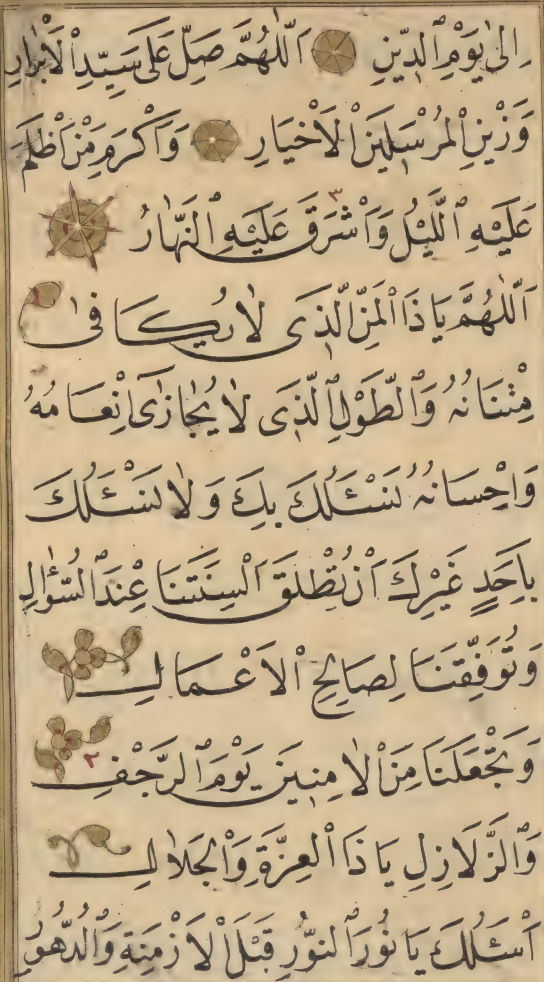 اِلٰى يَوْمِ الدِّينِ اَللّٰهُمَّ صَلِّ عَلٰى سَيِّدِ الْاَبْرَارِ
وَزَيْنِ الْمُرْسَلِينَ الْاَخْيَارِ وَاَكْرَمِ مَنْ اَظْلَمَ
عَلَيْهِ اللَّيْلُ وَاَشْرَقَ عَلَيْهِ النَّهَارُ ٣
اَللّٰهُمَّ يَا ذَا الْمَنِّ الَّذِى لَا يُكَافٰى
مْتِنَانُهُ وَالطَّوْلِ الَّذِى لَا يُجَازٰى اِنْعَامُهُ
وَاِحْسَانُهُ نَسْئَلُكَ بِكَ وَلَا نَسْئَلُكَ
بِاَحَدٍ غَيْرِكَ اَنْ تُطْلِقَ اَلْسِنَتَنَا عِنْدَ السُّؤَالِ
وَتُوَفِّقَنَا لِصَالِحِ الْاَعْمَالِ
وَتَجْعَلَنَا مِنَ الْاٰمِنِينَ يَوْمَ الرَّجْفِ ٢
وَالزَّلَازِلِ يَا ذَا الْعِزَّةِ وَالْجَلَالِ
اَسْئَلُكَ يَا نُورَ النُّورِ قَبْلَ الْاَزْمِنَةِ وَالدُّهُورِ